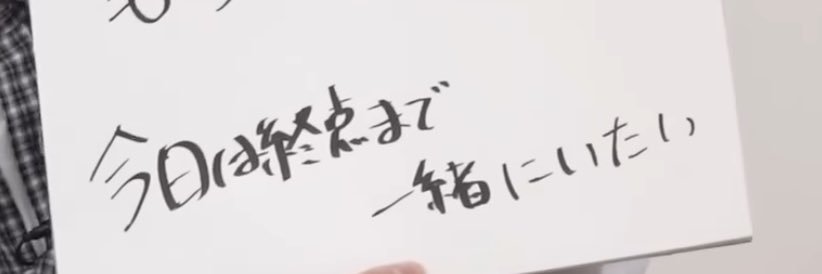 今日は終点まで
一緒にいたい